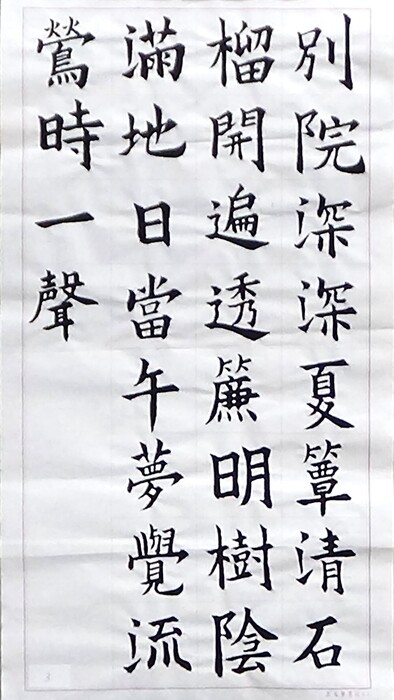 別院深深夏簟清石
榴開遍透簾明樹陰
滿地日當午夢覺流
鶯時一聲
3